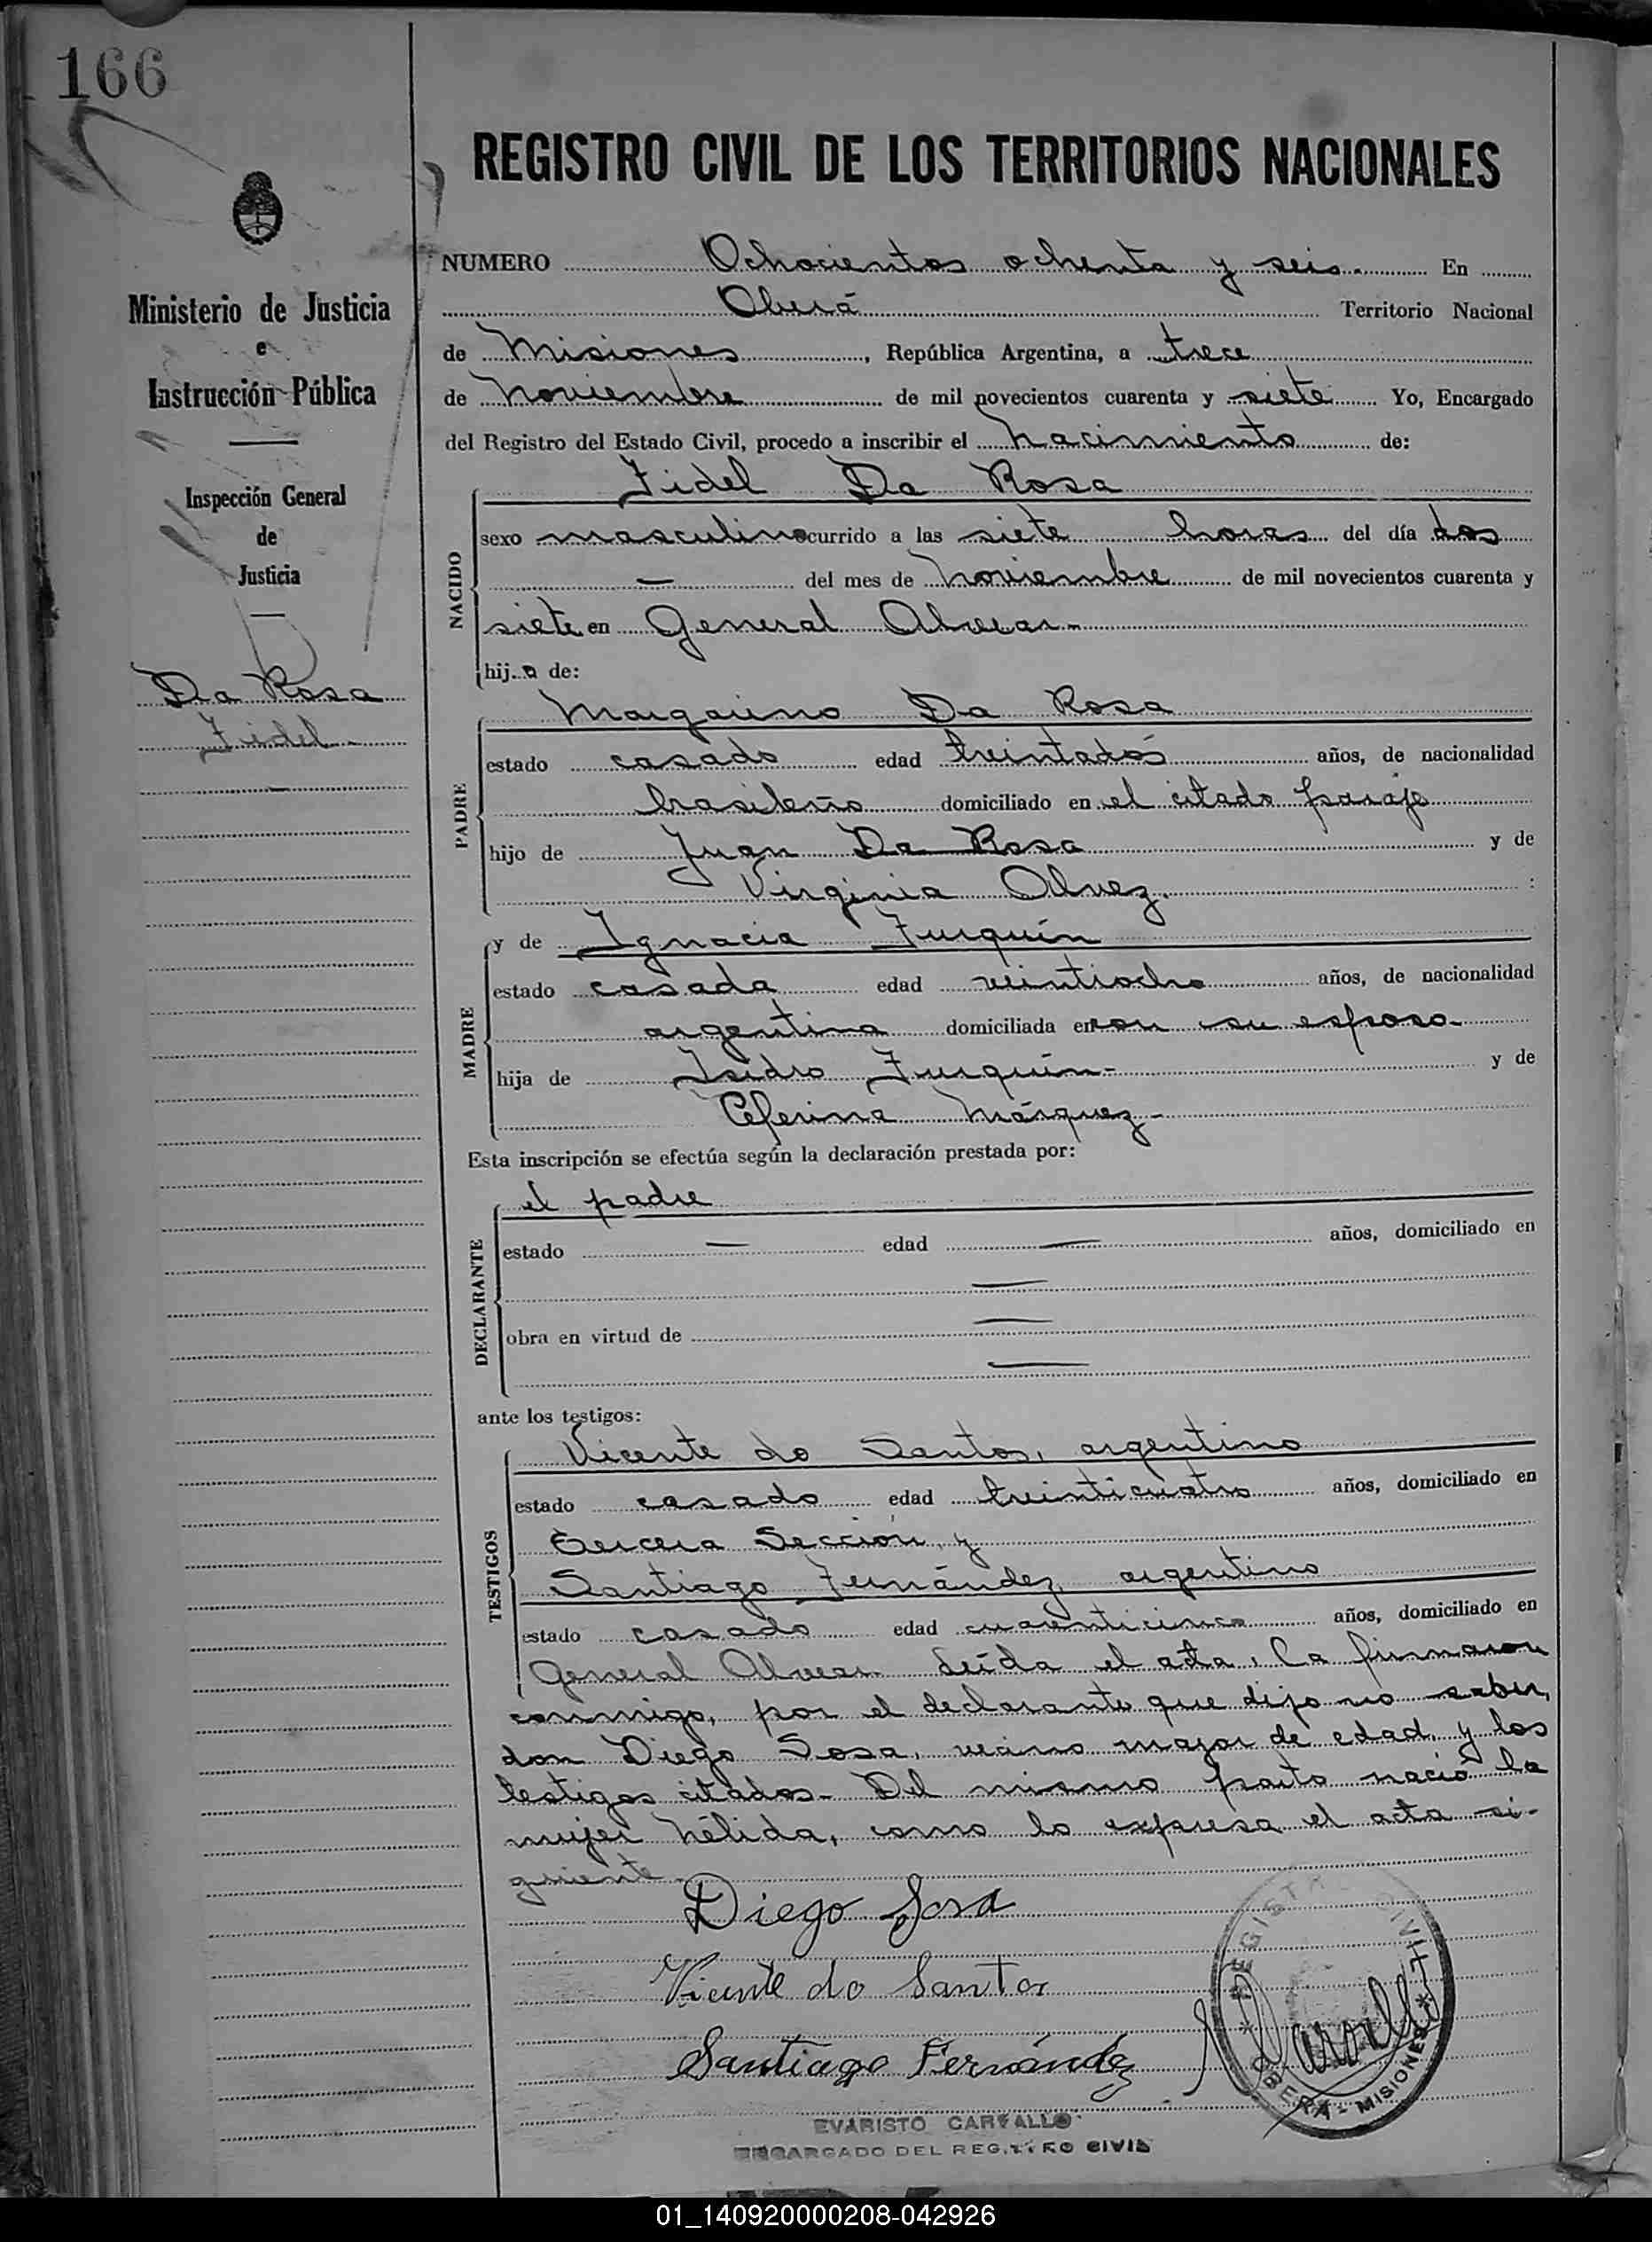 166
REGISTRO CIVIL DE LOS TERRITORIOS NACIONALES
Ministerio de Justicia
e
Instrucción Pública
Inspección General
de
Justicia
Da Rosa
Fidel
NUMERO Ochocientos ochenta y seis. En
Oberá Territorio Nacional
de Misiones, República Argentina, a trece
de Noviembre de mil novecientos cuarenta y siete Yo, Encargado
del Registro del Estado Civil, procedo a inscribir el nacimiento de:
Fidel Da Rosa
NACIDO
sexo masculino ocurrido a las siete horas del día dos
— del mes de noviembre de mil novecientos cuarenta y
siete en General Alvear-
hijo de:
Margarino Da Rosa
PADRE
estado casado edad treintados años, de nacionalidad
brasileño domiciliado en el citado paraje
hijo de Juan Da Rosa y de
Virginia Alvez.
y de Ignacia Furquín
MADRE
estado casada edad veintiocho años, de nacionalidad
argentina domiciliada en con su esposo-
hija de Isidro Furquín- y de
Ceferina Márquez-
Esta inscripción se efectúa según la declaración prestada por:
el padre
DECLARANTE
estado — edad — años, domiciliado en
—
obra en virtud de —
—
ante los testigos:
Vicente do Santos, argentino
TESTIGOS
estado casado edad treinticuatro años, domiciliado en
Tercera Sección, y
Santiago Fernández argentino
estado casado edad cuarenticinco años, domiciliado en
General Alvear. Leída el acta, la firmaron
conmigo, por el declarante que dijo no saber,
don Diego Sosa, vecino mayor de edad, y los
testigos citados- Del mismo parto nació la
mujer Nélida, como lo expresa el acta si-
guiente.
Diego Sosa
Vicente do Santos
Santiago Fernández
REGISTRO CIVIL
OBERÁ - MISIONES
EVARISTO CARVALLO
ENCARGADO DEL REGISTRO CIVIL
01_140920000208-042926